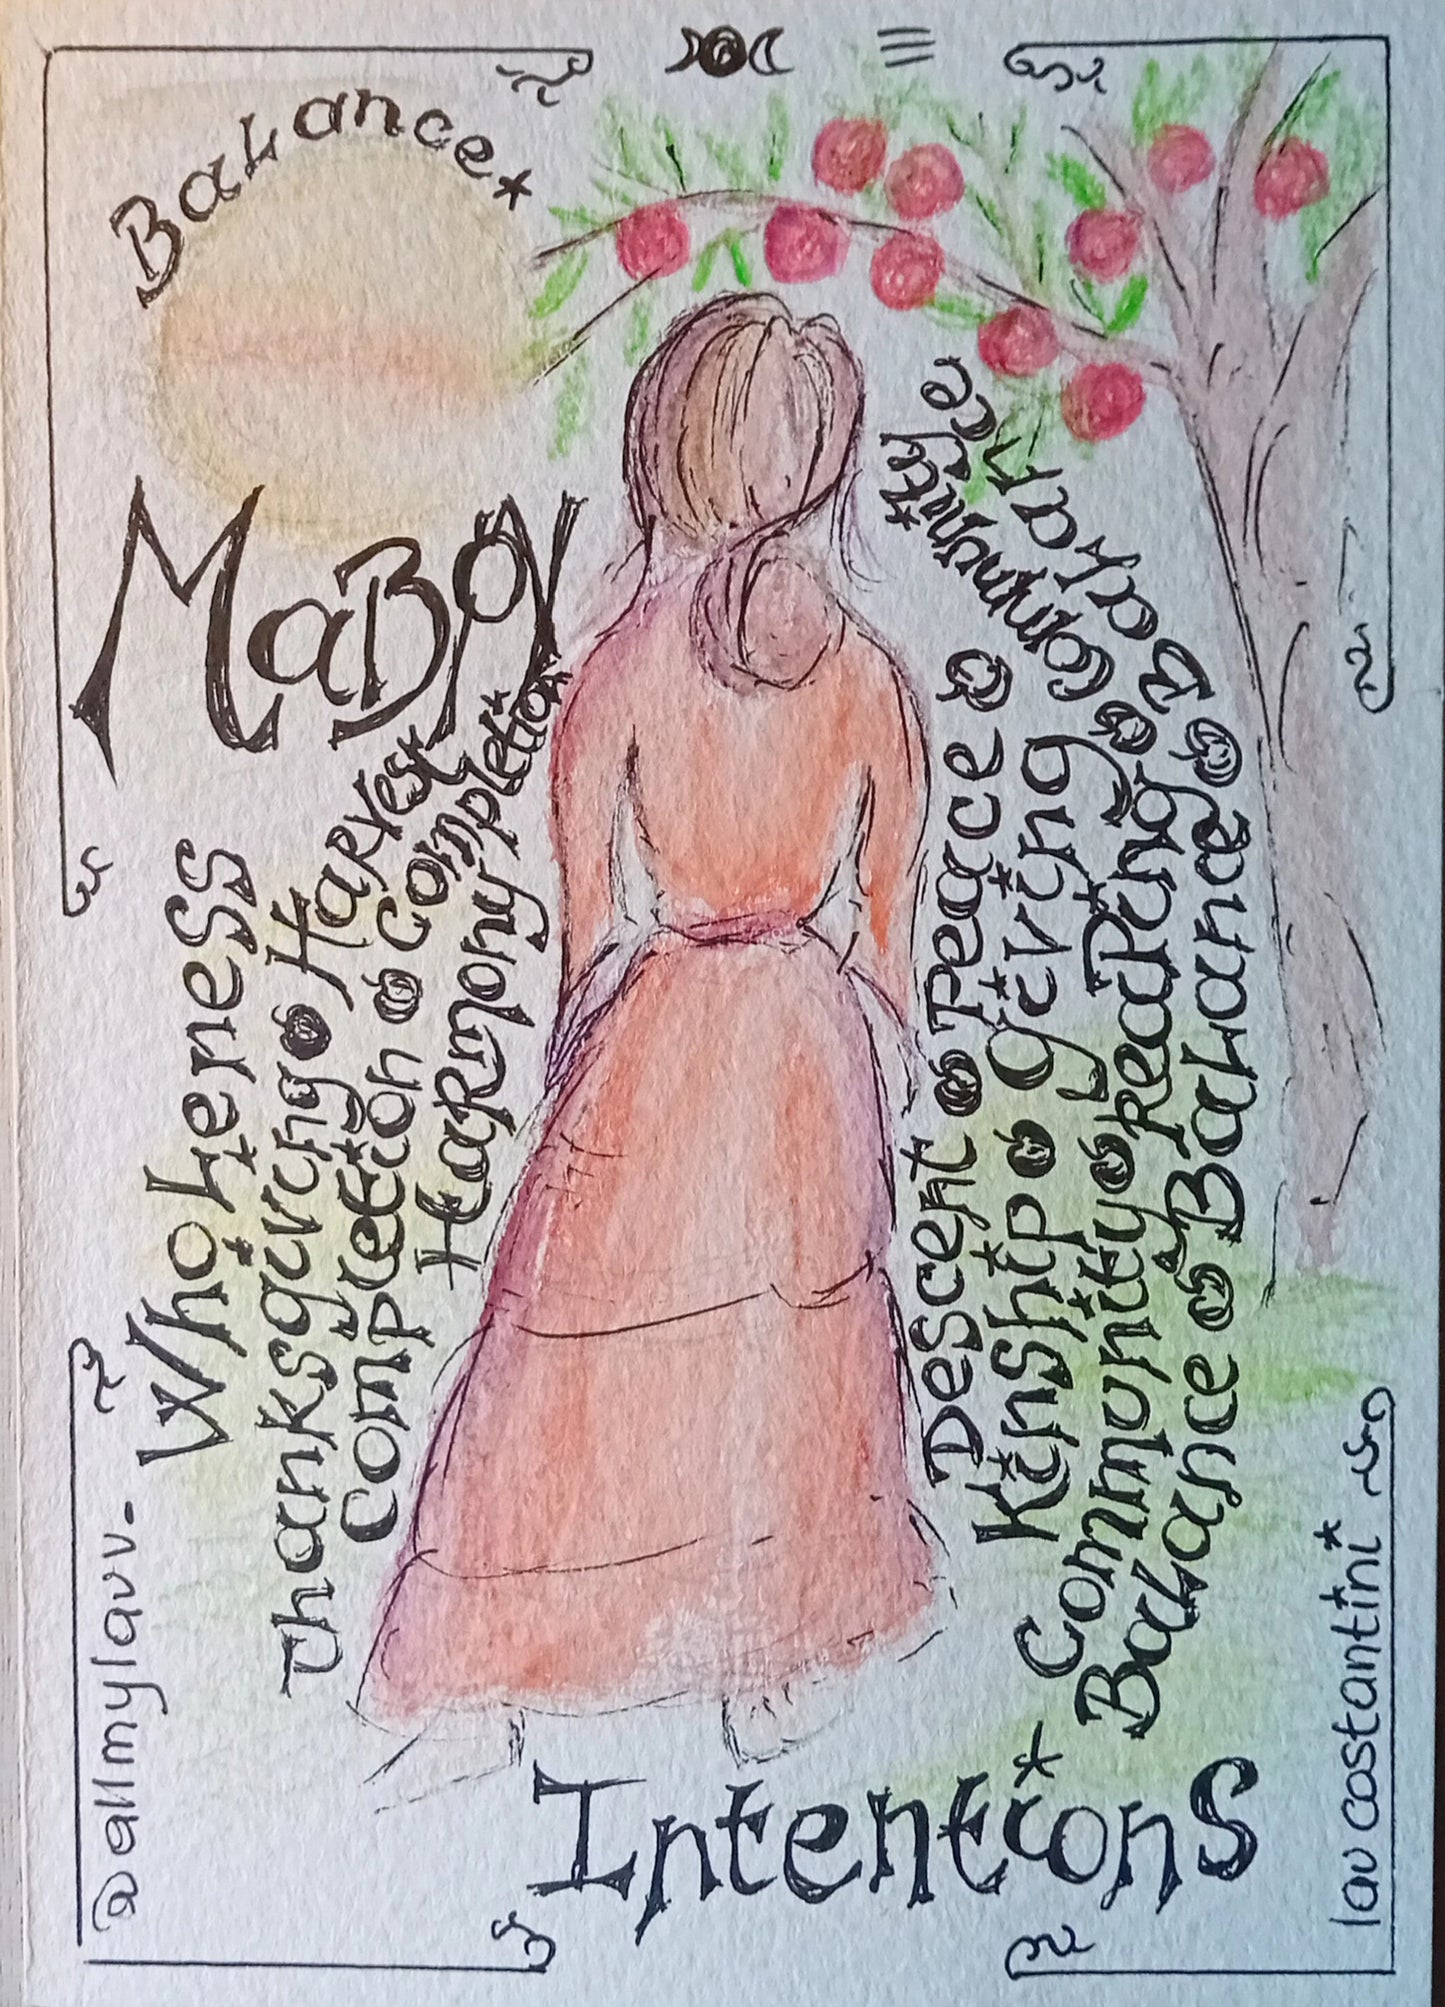 Balance*
MaBON
Wholeness
Thanksgiving Harvest
Completion Completion
Harmony
Descent Peace
Kinship giving Community
Community Reaping Balance
Balance Balance
Intentions
@allmylauv-
lau costantini